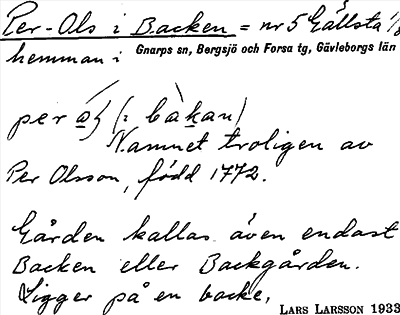 Per-Ols i Backen = nr 5 Gällsta 1/8
hemman i Gnarps sn, Bergsjö och Forsa tg, Gävleborgs län
per (: bakan)
Namnet troligen av
Per Olsson, född 1772.
Gården kallas även endast
Backen eller Backgården.
Ligger på en backe,
LARS LARSSON 1933